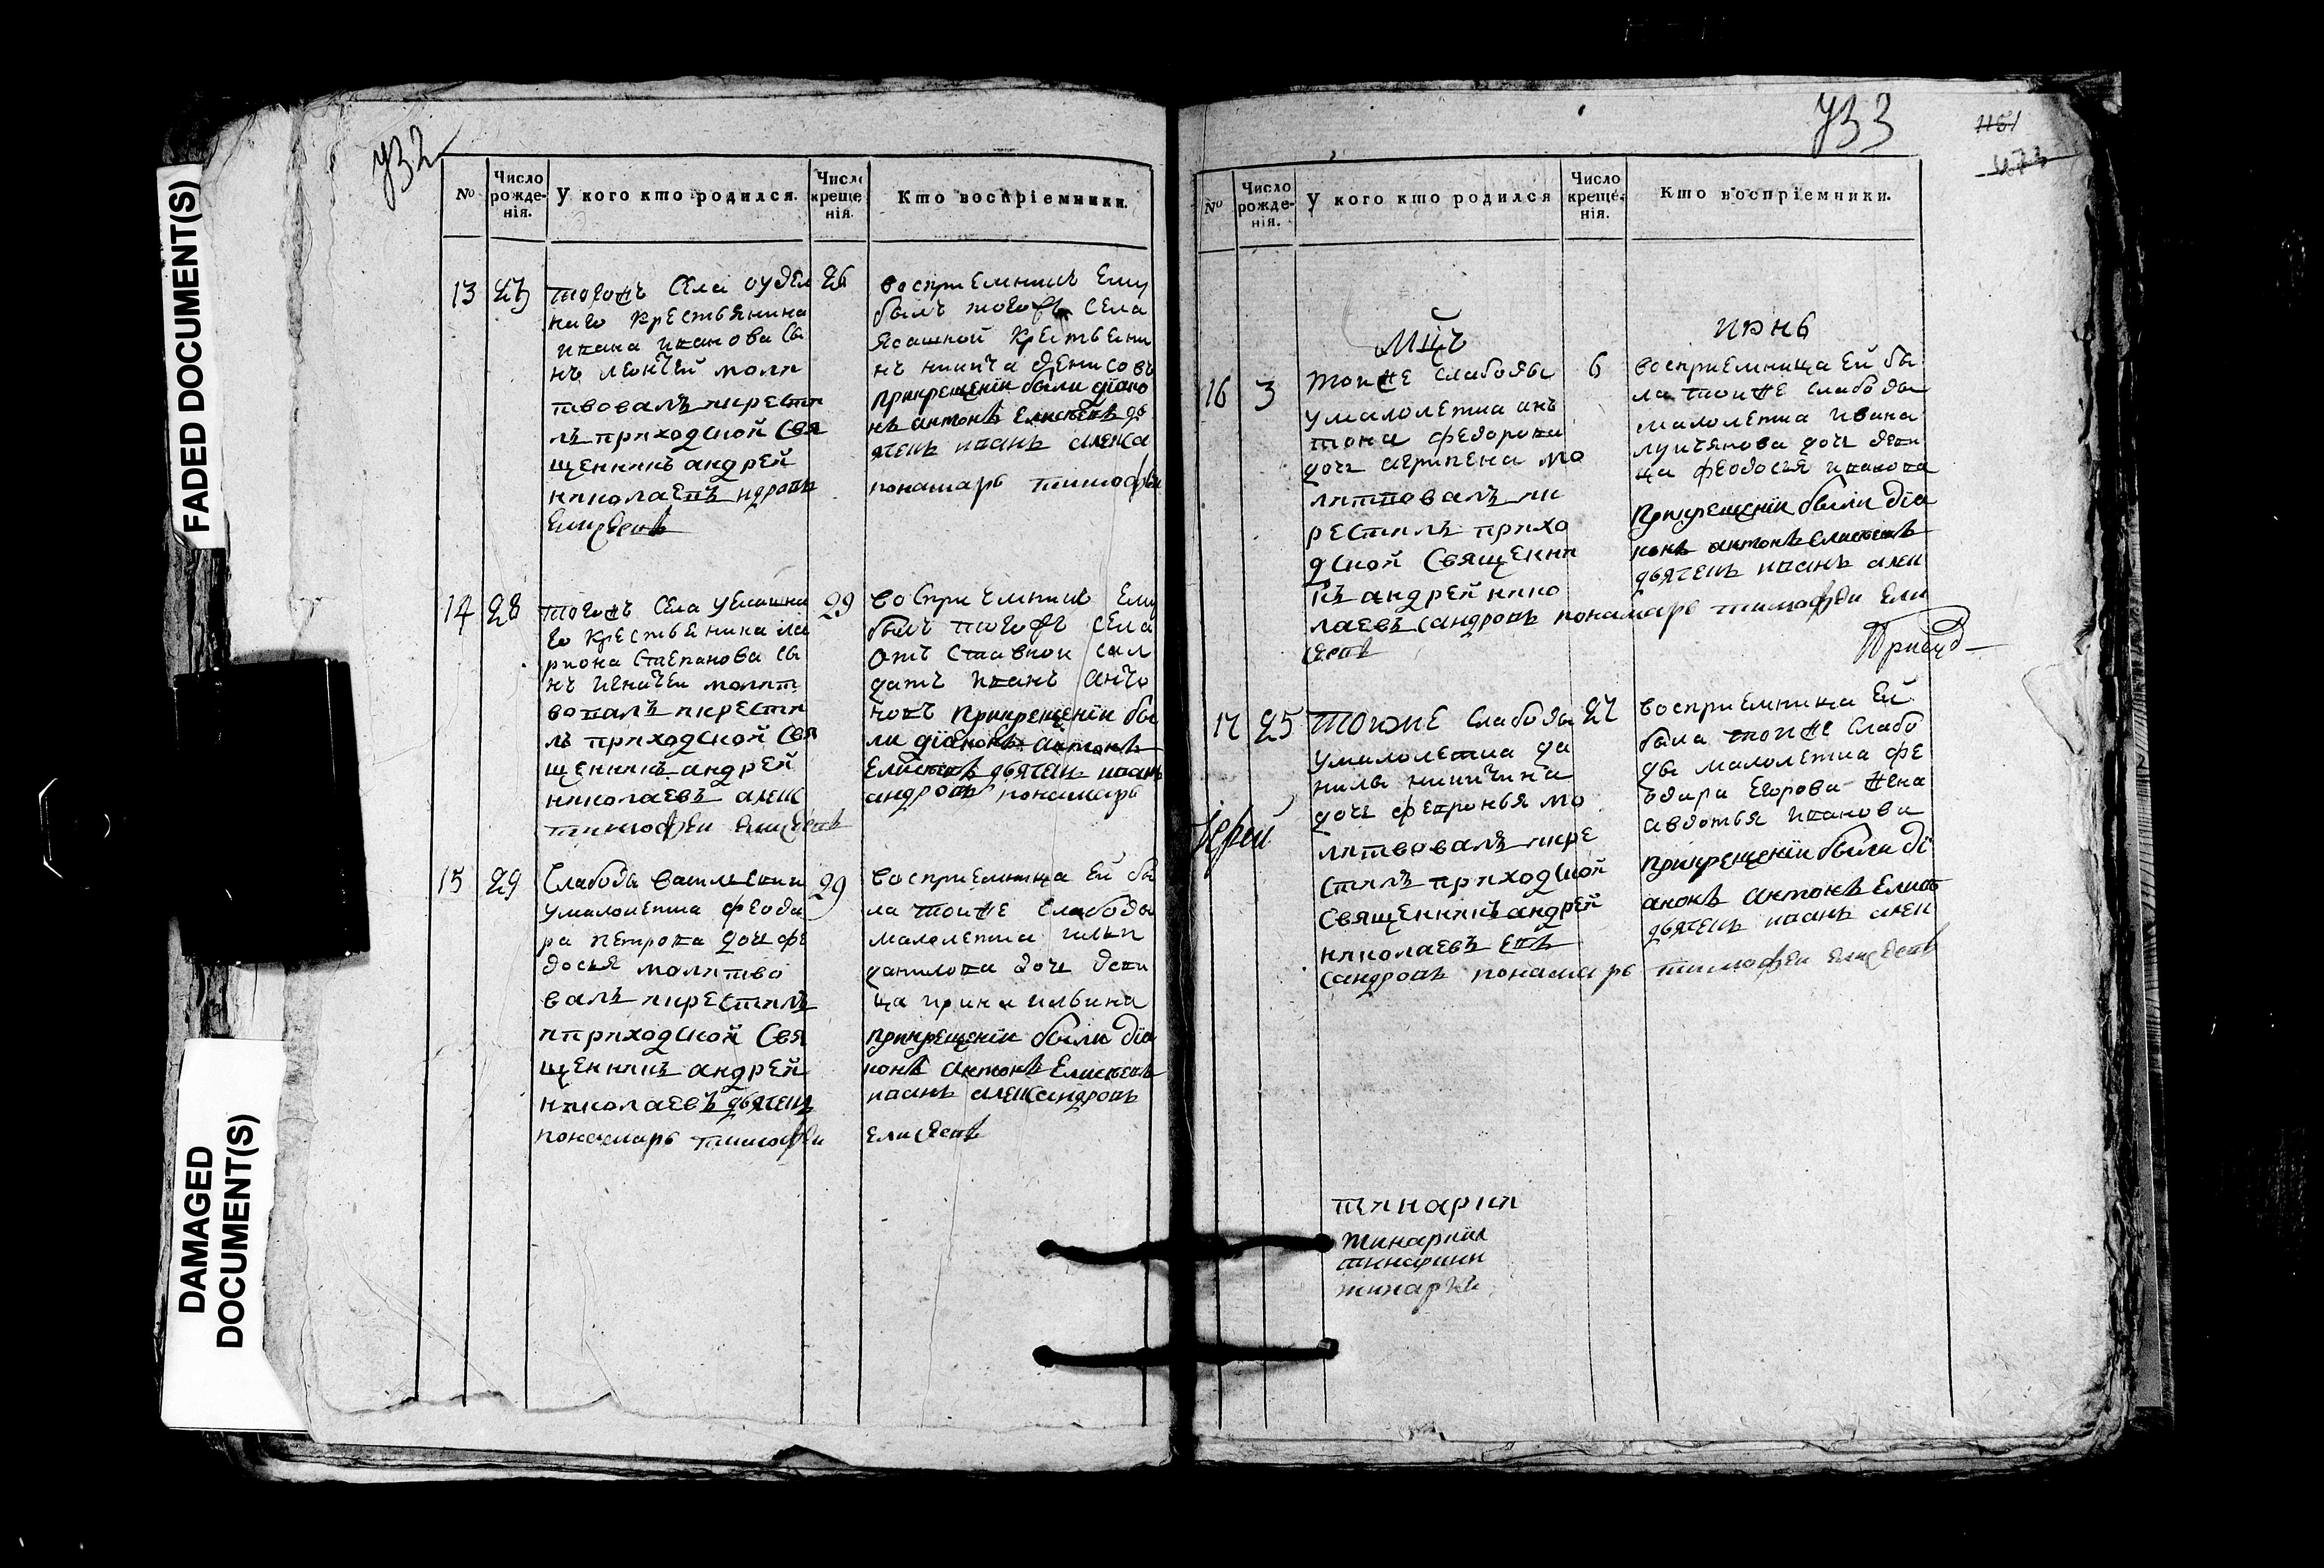 FADED DOCUMENT(S)
DAMAGED
DOCUMENT(S)
732
№
Число рожде-нія.
У кого кто родился.
Число креще-нія.
Кто воспріемники.
13
26
тогожъ села оудел
наго крестьянина
ивана иванова сы
нъ леонтей моли
твовалъ икрести
лъ приходской свя
щенникъ андрей
николаевъ ндровъ
елисеевъ
восприемникъ ему
былъ тогожъ села
ясашной крестьяни
нъ никита денисовъ
прикрещеніи были діако
нъ антонъ елисеевъ дь
ячекъ иванъ алекса
понамарь тимофеи
14
28
29
тогожъ села
го крестьянина ла
риона степанова сы
нъ игнатеи молит
вовалъ икрести
лъ приходской свя
щенникъ андрей
николаевъ алекс
тимофеи елисеевъ
восприемникъ ему
былъ тогожъ села
отъ ставнои сал
датъ иванъ анто
новъ прикрещеніи бы
ли діаконъ антонъ
елисеевъ дьячекъ иванъ
андровъ понамарь
15
29
29
слабоды василевки
умалолетна феодо
ра петрова дочь фе
досья молитво
валъ икрестилъ
приходской свя
щенникъ андрей
николаевъ дьячекъ
понамарь тимофеи
восприемница ей бы
ла тоиже слабоды
малолетна ильи
данилова дочь деви
ца ирина ильина
прикрещеніи были діа
конъ антонъ елисеевъ
иванъ александровъ
елисеевъ
733
1181
473
№
Число рожде-нія.
У кого кто родился
Число креще-нія.
Кто воспріемники.
мцъ
июнь
16
3
6
тоиже слабоды
умалолетна ан
тона федорова
дочь агрипена мо
литвовалъ ик
рестилъ прихо
дской священни
къ андрей нико
лаевъ сандровъ понамарь тимофеи ели
сеевъ
восприемница ей бы
ла тоиже слабоды
малолетна ивана
лукьянова дочь деви
ца феодосья иванова
прикрещеніи были діа
конъ антонъ елисеевъ
дьячекъ иванъ алек
17
25
27
тогоже слабоды
умалолетна да
нилы никитина
дочь февронья мо
литвовалъ икре
стилъ приходской
священникъ андрей
николаевъ евъ
сандровъ понамарь тимофеи елисеевъ
восприемница ей
была тоиже слабо
ды малолетна фе
одара егорова жена
авдотья иванова
прикрещеніи были ді
аконъ антонъ елисе
дьячекъ иванъ алек
Іерей